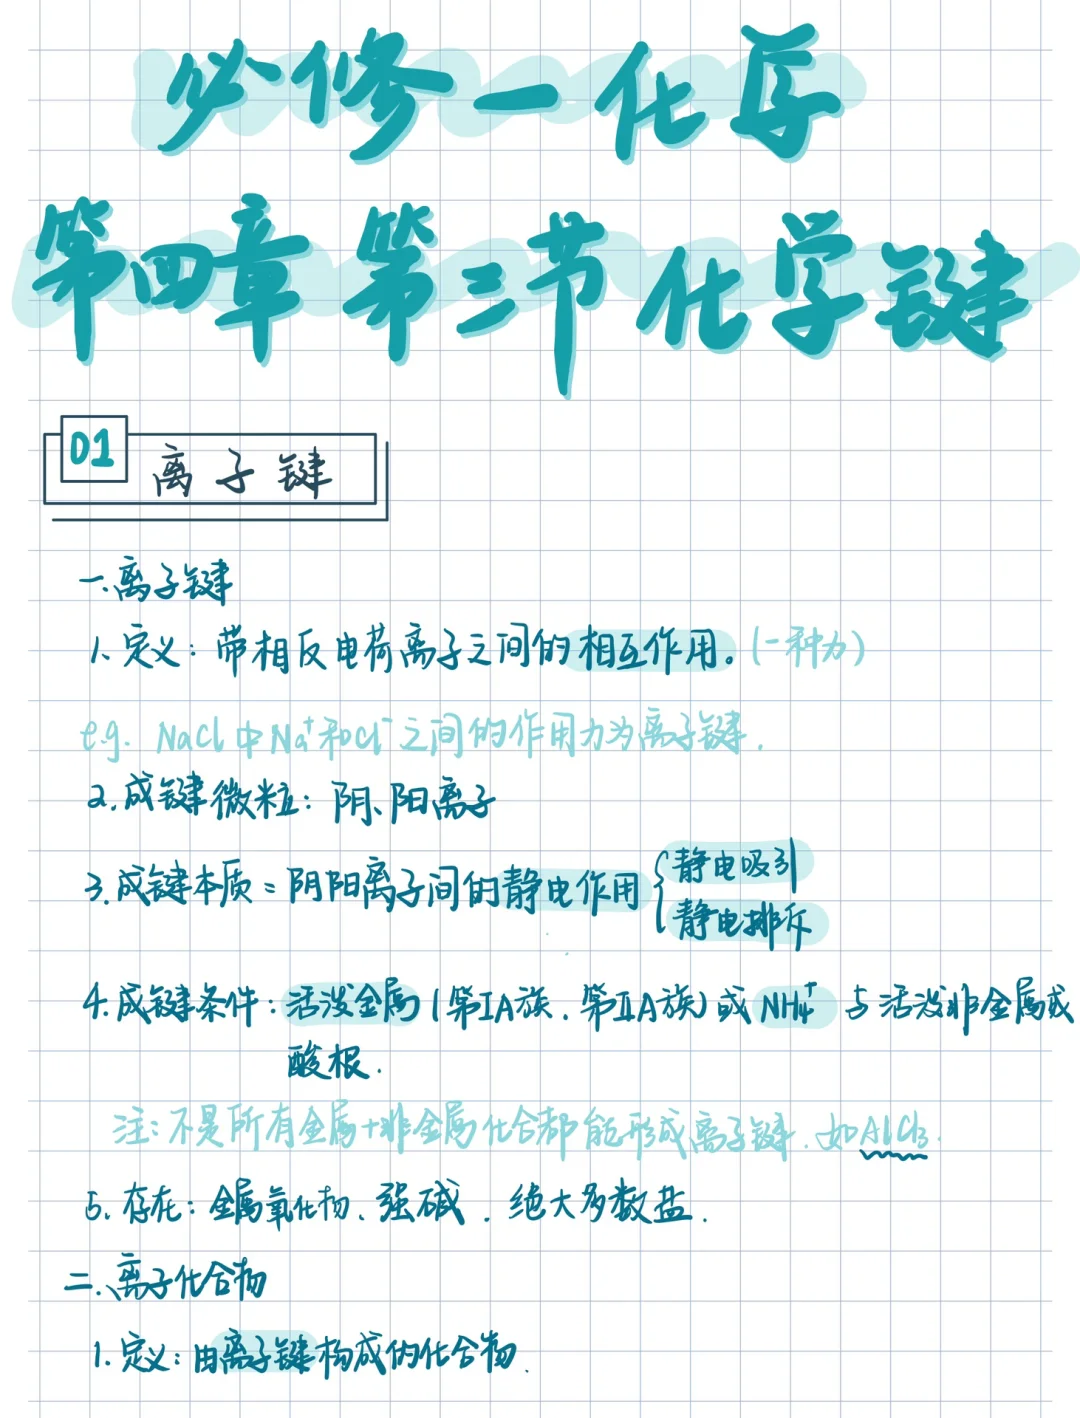 必修一化学
第四章第三节化学键
01 离子键
一.离子键
1.定义：带相反电荷离子之间的相互作用。(一种力)
e.g. NaCl中Na⁺和Cl⁻之间的作用力为离子键.
2.成键微粒：阴、阳离子
3.成键本质=阴阳离子间的静电作用{静电吸引
静电排斥
4.成键条件：活泼金属(第IA族.第IIA族)或NH₄⁺与活泼非金属或
酸根.
注：不是所有金属+非金属化合都能形成离子键.如AlCl₃.
5.存在：金属氧化物、强碱.绝大多数盐.
二.离子化合物
1.定义：由离子键构成的化合物.